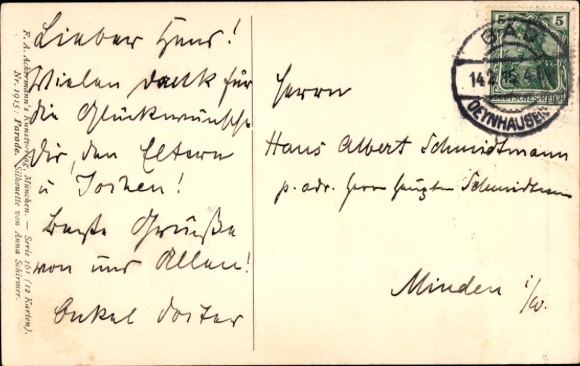 Lieber Hans!
Vielen Dank für
die Glückwünsche
Dir, den Eltern
u Jochen!
Beste Grüße
von uns Allen!
Onkel
Herrn
Hans Albert Schmidtmann
p. adr. Herrn Hauptm Schmidtmann
Minden i/W.
F. A. Ackermann's Kunstverlag, München. — Serie 161 (12 Karten).
Nr. 1915: Parade. Silhouette von Anna Schirmer.
5 5
DEUTSCHES REICH
BAD
14.2.15.4
OEYNHAUSEN